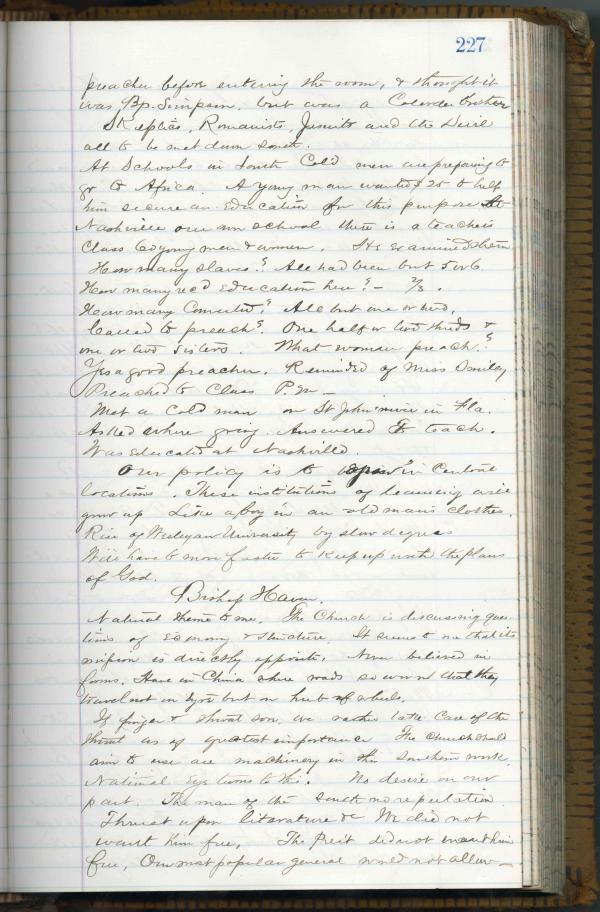 227
preacher before entering the room, & thought it
was Bp. Simpson, but was a Colorder brother
Skeptics, Romanists, Jesuits and the Devil
all to be met down south.
At Schools in South Cold men are preparing to
go to Africa. A young man wanted $25 to help
him secure an Education for this purpose At
Nashville our own school there is a teachers
Class 60 young men & women. He examined them
How many slaves? All had been but 5 or 6
How many rec'd Education here? – 2/3.
How many Converted? All but one or two,
Called to preach? One half or two thirds &
one or two Sisters. What woman preach?
Yes a good preacher. Reminded of Miss Smiley
Preached to Class P.M –
Met a Cold man on St John river in Fla.
Asked where going. Answered To teach.
Was Educated at Nashville.
Our policy is to in Central
locations. These institutions of learning will
grow up Like a boy in an old mans clothes.
Rise of Wesleyan University by slow degrees
Will have to move faster to keep up with the plans
of God.
Bishop Haven.
Natural theme to me. The Church is discussing ques
tions of Economy & structure. It seems to me that its
mission is directly opposite. Never believed in
forms. Have in China where roads so worn that they
travel not on tyre but on hub of wheel.
If finger & throat son, we rather take Care of the
throat as of greatest importance The Church should
aim to use all machinery in the Southern work.
National eye turns to this. No desire on our
part. The man of the south no reputation
Thrust upon literature &c We did not
want him free, The Prest did not want him
free, Our most popular general would not allow –